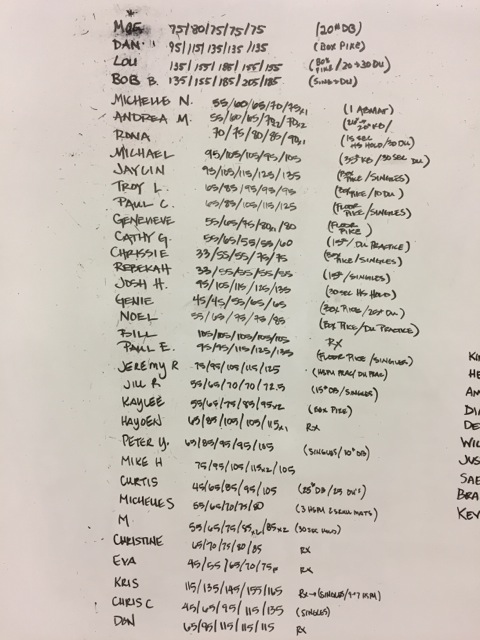 MOE 75/80/75/75/75 (20# DB)
DAN 95/115/135/135/135 (BOX PIKE)
LOU 135/155/185/155/155 (BOX PIKE / 20→30 DU)
BOB B. 135/155/185/205/185 (SING→DU)
MICHELLE N. 55/60/65/70/75x1 (1 ABMAT)
ANDREA M. 55/60/65/70x2 /70x2
RONA 70/75/80/85/90x1 (15 SEC HS HOLD/30 DU)
MICHAEL 95/105/105/95/105 (35# KB/30 SEC DU)
JAYLIN 95/105/115/125/135 (BOX PIKE/SINGLES)
TROY L. 65/85/95/95/95 (BOX PIKE/10 DU)
PAUL C. 65/85/105/115/125 (FLOOR PIKE/SINGLES)
GENEVIEVE 55/65/75/80x1/80 (FLOOR PIKE)
CATHY G. 55/65/55/55/60 (15#/DU PRACTICE)
CHRISSIE 33/55/55/75/75 (BOX PIKE/SINGLES)
REBEKAH 33/55/55/55/55 (15#/SINGLES)
JOSH H. 95/105/115/125/135 (30 SEC HS HOLD)
GENIE 45/45/55/65/65 (BOX PIKE/20+ DU)
NOEL 55/65/75/75/85 (BOX PIKE/DU PRACTICE)
BILL 105/105/105/105/105 RX
PAUL E. 95/95/115/125/135 (FLOOR PIKE/SINGLES)
JEREMY R 75/95/105/115/125 (HSPU PRAC/DU PRAC)
JILL R 55/65/70/70/72.5 (15# DB/SINGLES)
KAYLEE 55/65/75/85/95x2 (BOX PIKE)
HAYDEN 65/85/105/105/115x1 RX
PETER Y. 65/85/95/95/105 (SINGLES/10# DB)
MIKE H 75/95/105/115x2/105
CURTIS 45/65/85/95/105 (25# DB/25 DU'S)
MICHELLE S 55/65/70/75/80 (3 HSPU 2 SMALL MATS)
M 55/65/75/85x2/85x2 (30 SEC HOLD)
CHRISTINE 65/70/75/80/85 RX
EVA 45/55/65/70/75F RX
KRIS 115/135/145/155/165 RX→(SINGLES/
CHRIS C 45/65/95/115/135 (SINGLES)
DON 65/95/115/115/115 RX
KI
HE
AM
DI
DE
WIL
JUS
SAE
BRA
KEV